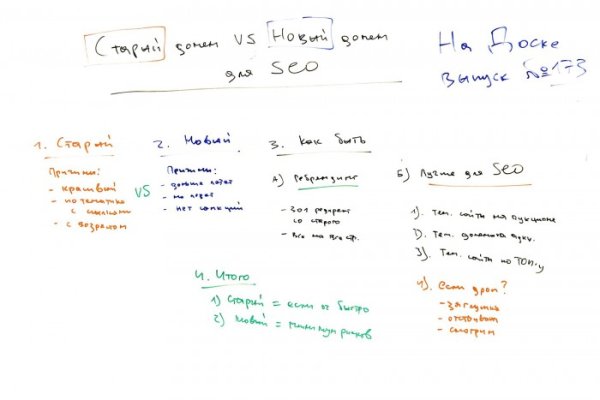 Старый домен VS Новый домен
для SEO
На Доске
выпуск №173
1. Старый
Причины:
- красивый
- по тематике
с ссылками
- с возрастом
VS
2. Новый
Причины:
- дольше
- на
- нет санкций
3. Как быть
А) Ребрендинг
- 301 редирект
со старого
- все на все стр.
Б) Лучше для SEO
1). Тем. сайты на аукционе
2). Тем. домена аукц.
3). Тем. сайты по ТОП-у
4). если дроп?
- заглушка
- отстойник
- смотрим
4. Итого
1) Старый = если ок быстро
2) Новый = минимум рисков